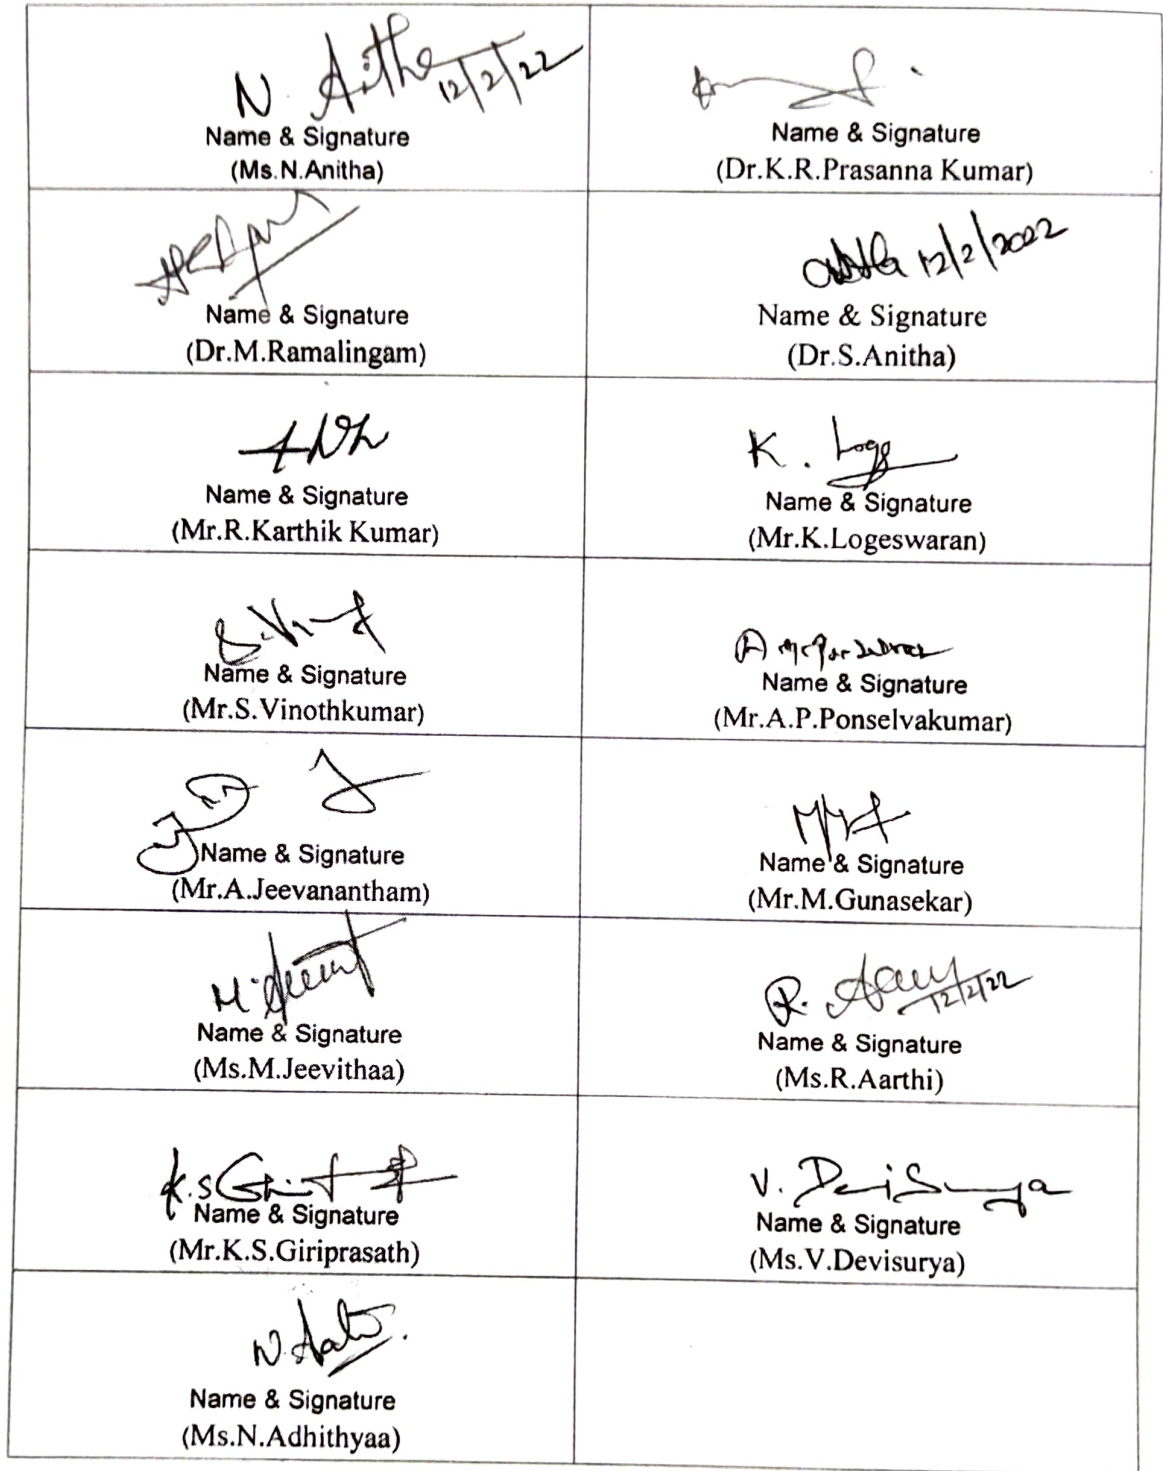 N. Anitha 12/2/22
Name & Signature
(Ms.N.Anitha)
Name & Signature
(Dr.K.R.Prasanna Kumar)
Name & Signature
(Dr.M.Ramalingam)
12/2/2022
Name & Signature
(Dr.S.Anitha)
Name & Signature
(Mr.R.Karthik Kumar)
K. Loge
Name & Signature
(Mr.K.Logeswaran)
Name & Signature
(Mr.S.Vinothkumar)
Name & Signature
(Mr.A.P.Ponselvakumar)
Name & Signature
(Mr.A.Jeevanantham)
Name & Signature
(Mr.M.Gunasekar)
Name & Signature
(Ms.M.Jeevithaa)
R. 12/2/22
Name & Signature
(Ms.R.Aarthi)
K.S
Name & Signature
(Mr.K.S.Giriprasath)
V. DeviSurya
Name & Signature
(Ms.V.Devisurya)
Name & Signature
(Ms.N.Adhithyaa)